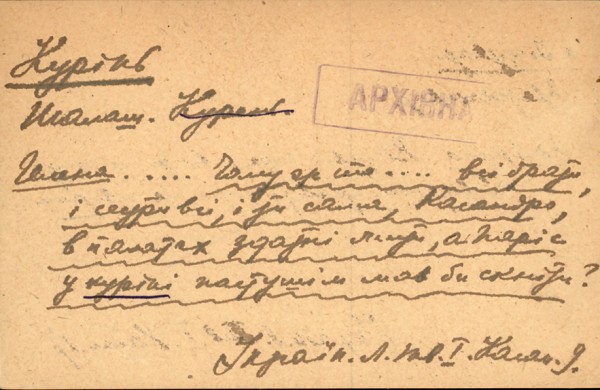 Курінь
Шалаш. Курень
АРХІВНА
Гелена..... Чому ж то.... всі брати,
і сестри всі, і ти сама, Касандро,
в палатах здатні жити, а Паріс
у куріні пастушім мав би скніти?
Україн. Л. тв. І. Касан. 9.